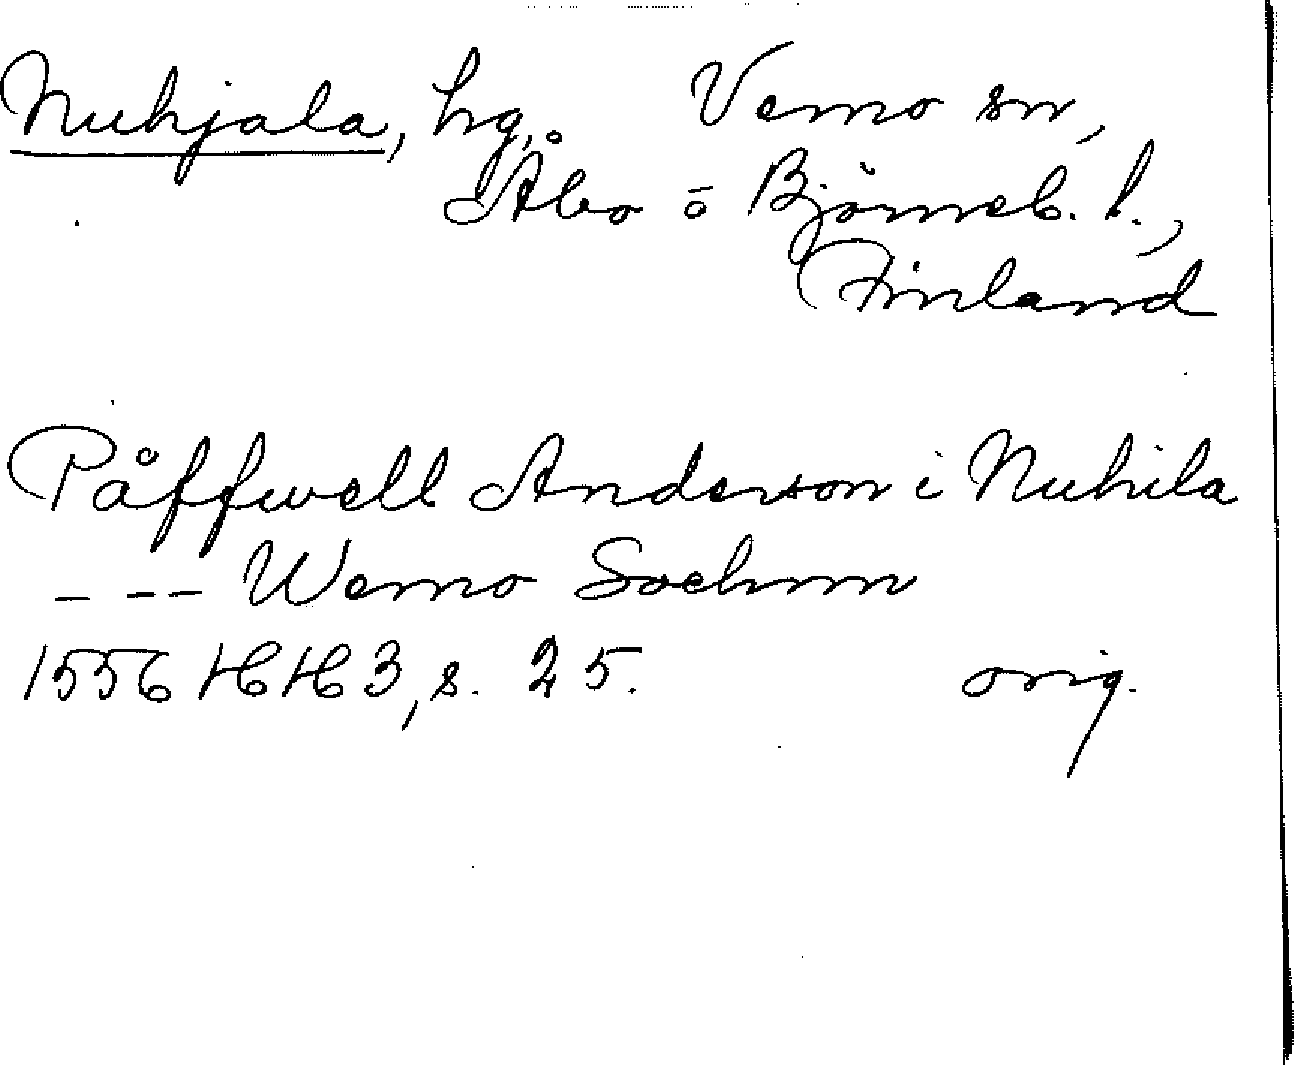 Nuhjala, hg, Vemo sn,
Åbo o Björneb. l.,
Finland
Påffwell Anderson i Nuhila
- -- Wemo Sochnn
1556 HH 3, s. 25. orig.